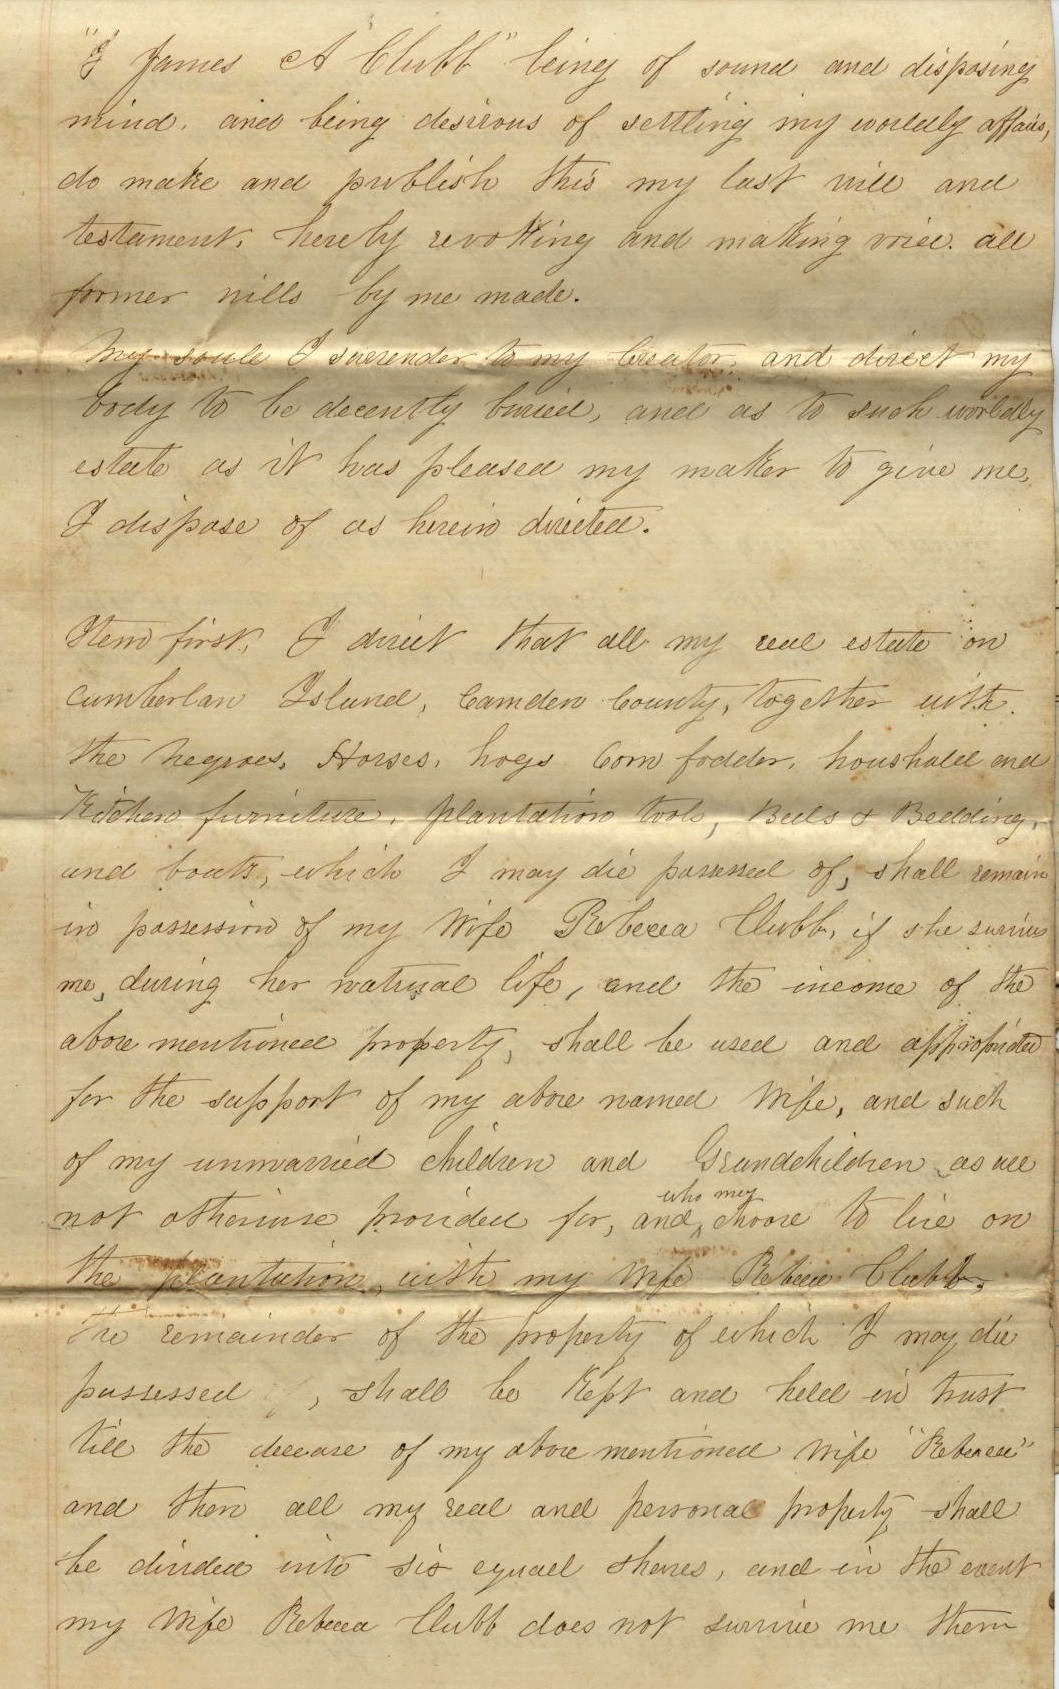 "I James A Clubb" being of sound and disposing
mind. and being desirous of settling my worldly affairs,
do make and publish this my last will and
testament. hereby revoking and making void. all
former wills by me made.
My soule I surrender to my Creator. and direct my
body to be decently buried, and as to such worldly
estate as it has pleased my maker to give me,
I dispose of as herein directed.
Item first. I direct that all my real estate on
Cumberlan Island, Camden County, together with.
the Negroes, Horses, hogs Corn fodder, houshald and
Kitchen furniture, plantation tools, Beds & Bedding,
and boats, which I may die possessed of, shall remain
in possession of my Wife Rebecca Clubb, if she survive
me, during her natural life, and the income of the
above mentioned property, shall be used and appropriated
for the support of my above named Wife, and such
of my unmarried children and Grandchildren as are
who may
not otherwise provided for, and choose to live on
the plantation, with my Wife Rebecca Clubb.
The remainder of the property of which I may die
possessed of, shall be Kept and held in trust
till the decease of my above mentioned Wife "Rebecca"
and then all my real and personal property shall
be divided into six equael shares, and in the event
my Wife Rebecca Clubb does not survive me them